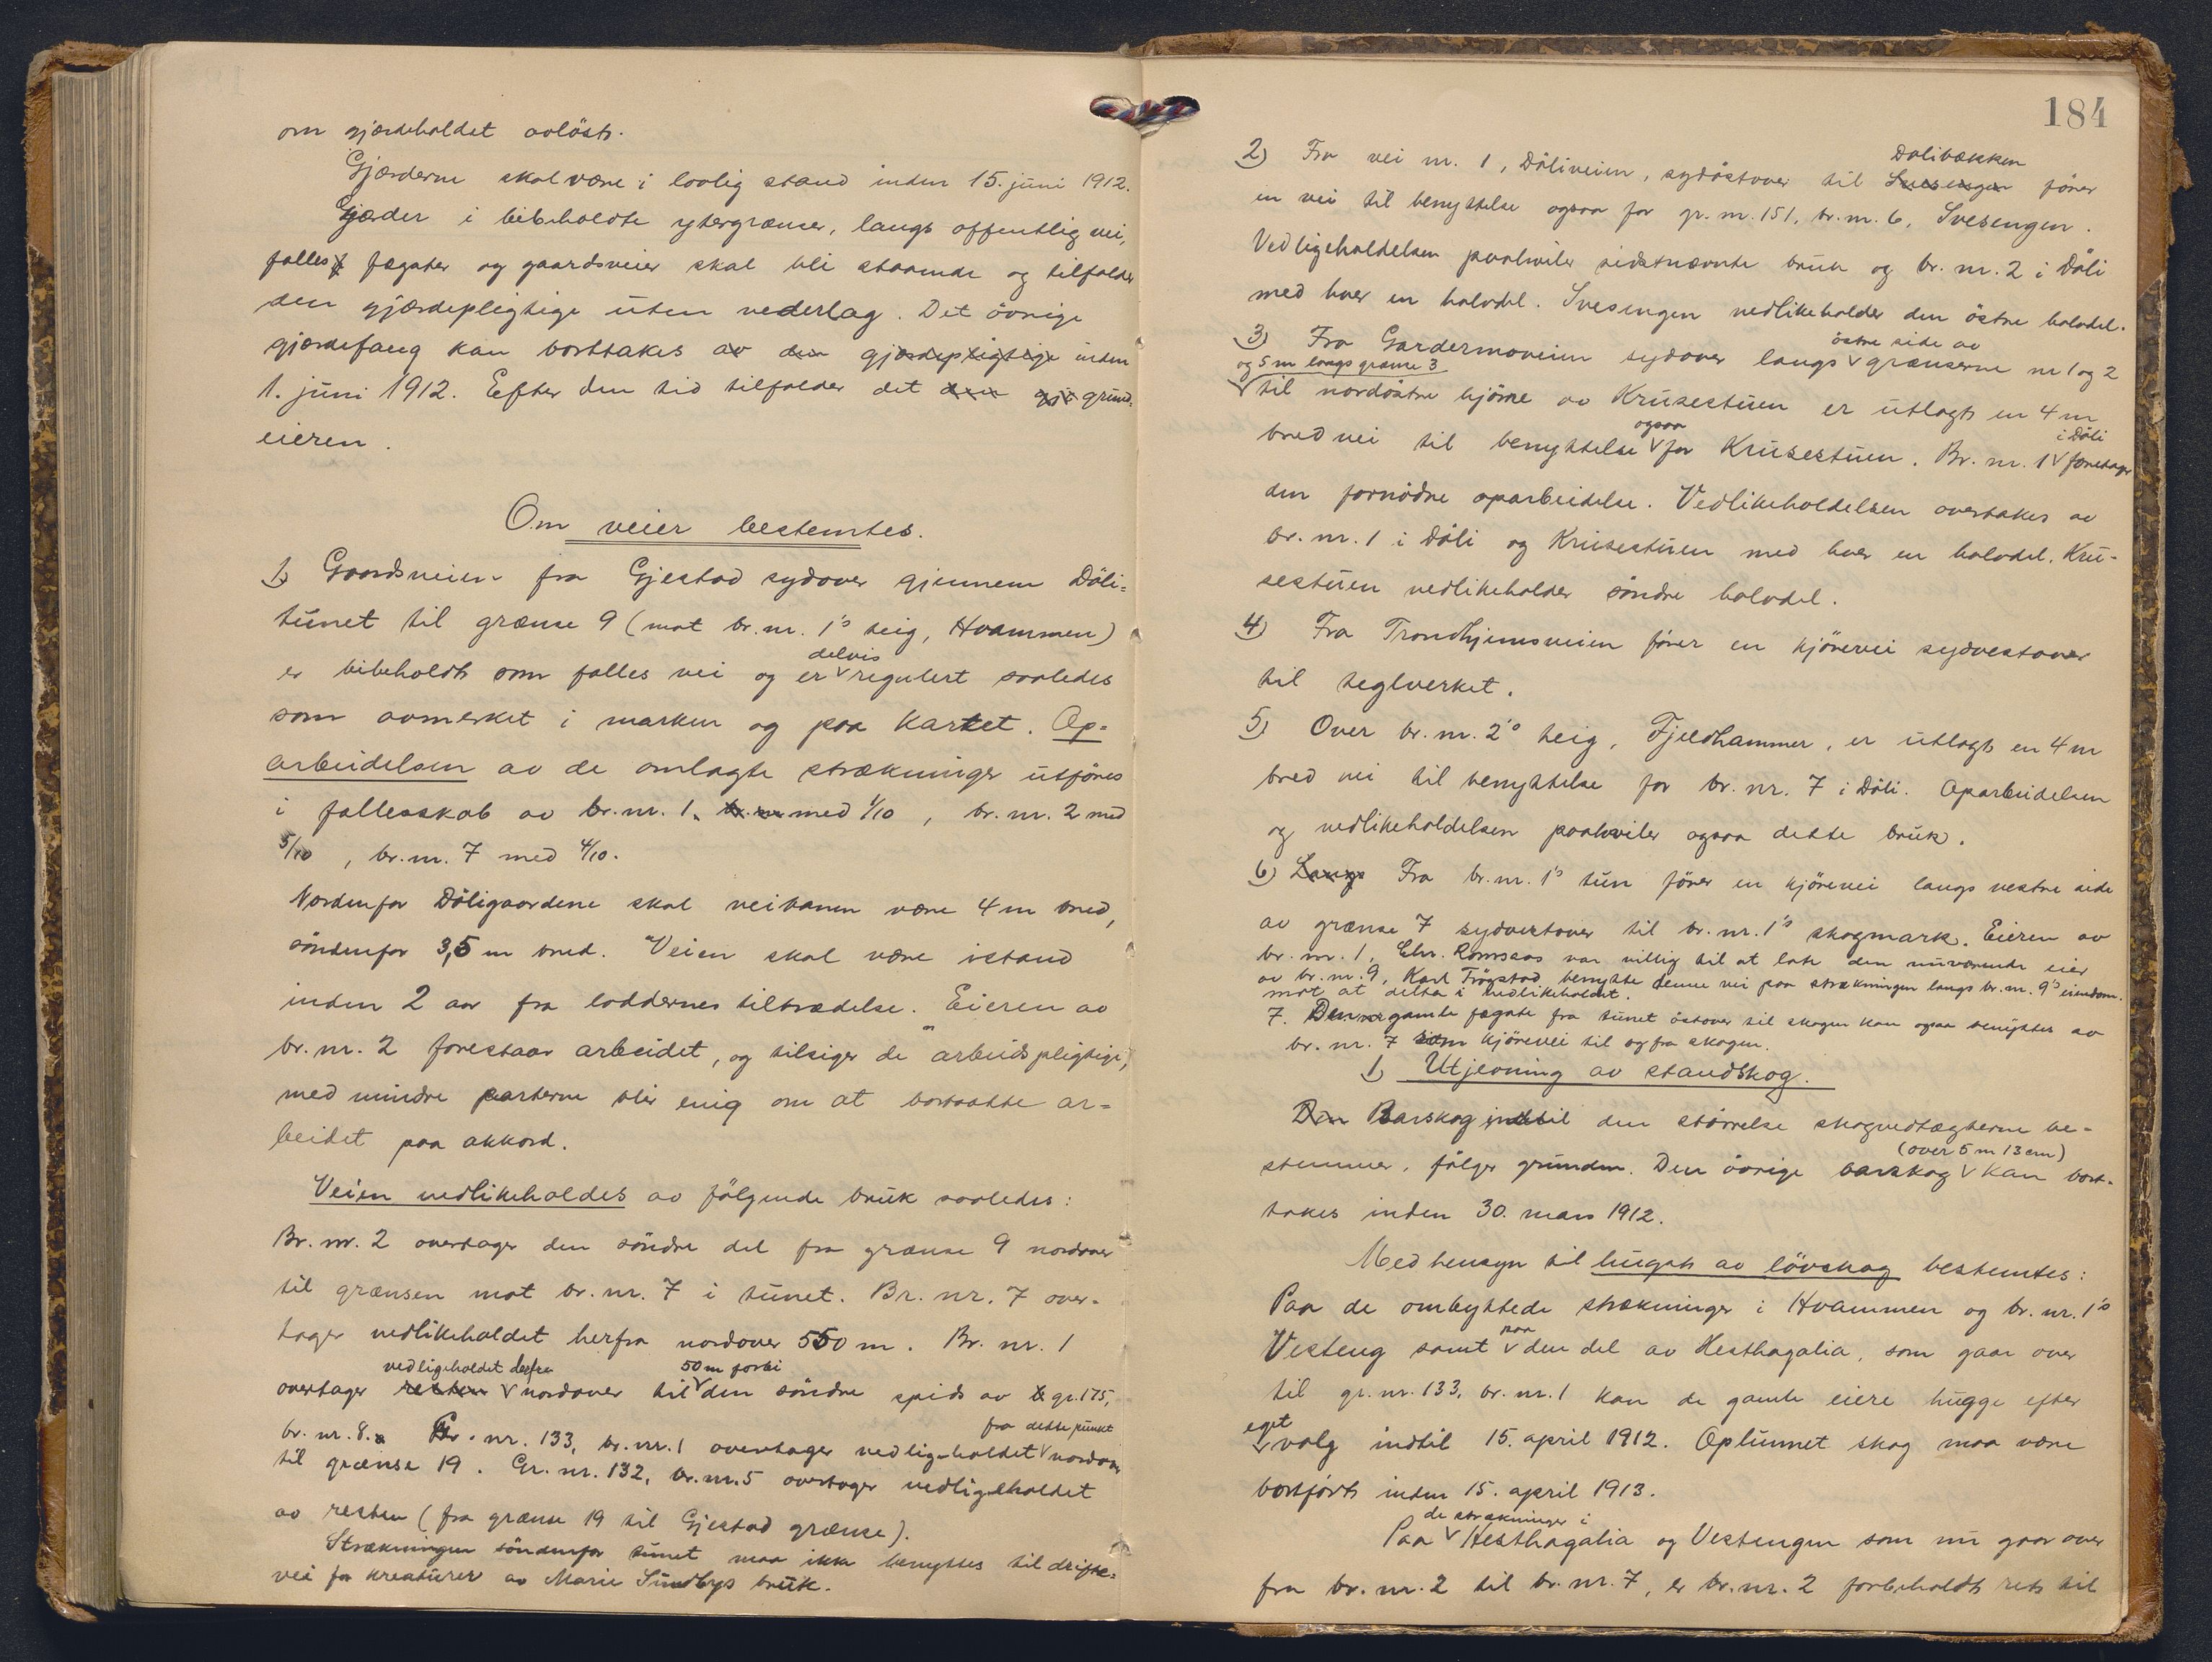 om gjærdeholdet avlöst.
Gjærderne skal være i lovlig stand inden 15. juni 1912.
Gjærder i bibeholdte ytergrænser, langs offentlig vei,
fælles fægater og gaardsveier skal bli staaende og tilfalder
den gjærdepligtige uten vederlag. Det övrige
gjærdefang kan borttakes av den gjærdepligtige inden
1. juni 1912. Efter den tid tilfalder det den gj grund-
eieren.
Om veier bestemtes.
1) Gaardsveien fra Gjestad sydover gjennem Däli-
tunet til grænse 9 (mot br. nr. 1's teig, Hvammen)
delvis
er bibeholdt som fælles vei og er v regulert saaledes
som avmerket i marken og paa kartet. Op-
arbeidelsen av de omlagte strækninger utföres
i fællesskab av br. nr. 1, br. nr. med 1/10, br. nr. 2 med
5/10, br. nr. 7 med 4/10.
Nordenfor Däligaardene skal veibanen være 4 m bred,
söndenfor 3,5 m bred. "Veien skal være istand
inden 2 aar fra loddernes tiltrædelse." Eieren av
br. nr. 2 forestaar arbeidet, og tilsiger de arbeidspligtige,
med mindre parterne blir enig om at bortsætte ar-
beidet paa akkord.
Veien vedlikeholdes av fölgende bruk saaledes:
Br. nr. 2 overtager den söndre del fra grænse 9 nordover
til grænsen mot br. nr. 7 i tunet. Br. nr. 7 over-
tager vedlikeholdet herfra nordover 550 m. Br. nr. 1
vedligeholdet derfra 50 m forbi
overtager resten v nordover til v den söndre spids av gr. 175,
fra dette punkt
br. nr. 8. Gr. nr. 133, br. nr. 1 overtager vedligeholdet v nordover
til grænse 19. Gr. nr. 132, br. nr. 5 overtager vedligeholdet
av resten (fra grænse 19 til Gjestad grænse).
Strækningen söndenfor tunet maa ikke benyttes til drifte-
vei for kreaturer av Marie Sundbys bruk.
184
Dälibækken
2) Fra vei nr. 1, Däliveien, sydöstover til Svesengen förer
en vei til benyttelse ogsaa for gr. nr. 151, br. nr. 6, Svesengen.
Vedligeholdelsen paahviler sidstnævnte bruk og br. nr. 2 i Däli
med hver en halvdel. Svesengen vedlikeholder den östre halvdel.
östre side av
3) Fra Gardermoveien sydover langs v grænserne nr 1 og 2
og 5 m langs grænse 3
v til nordöstre hjörne av Krusestuen er utlagt en 4 m
ogsaa i Däli
bred vei til benyttelse v for Krusestuen. Br. nr. 1 v foretager
den fornödne oparbeidelse. Vedlikeholdelsen overtakes av
br. nr. 1 i Däli og Krusestuen med hver en halvdel. Kru-
sestuen vedlikeholder söndre halvdel.
4) Fra Trondhjemsveien förer en kjörevei sydvestover
til teglverket.
5) Over br. nr. 2's teig, Fjeldhammer, er utlagt en 4 m
bred vei til benyttelse for br. nr. 7 i Däli. Oparbeidelsen
og vedlikeholdelsen paahviler ogsaa dette bruk.
6) Langs Fra br. nr. 1's tun förer en kjörevei langs vestre side
av grænse 7 sydvestover til br. nr. 1's skogmark. Eieren av
br. nr. 1, Chr. Ramsaas var villig til at late den nuværende eier
av br. nr. 9, Karl Frögstad benytte denne vei paa strækningen langs br. nr. 9's eiendom.
mot at delta i vedlikeholdet.
7. Den gamle fægate fra tunet östover til skogen kan ogsaa benyttes av
br. nr. 7 som kjörevei til og fra skogen.
1) Utjevning av standskog.
Den Barskog indtil den störrelse skogvedtægterne be-
(over 5 m 13 cm)
stemmer, fölger grunden. Den övrige barskog v kan bort-
takes inden 30. mars 1912.
Med hensyn til hugst av lövskog bestemtes:
Paa de ombyttede strækninger i Hvammen og br. nr. 1's
paa
Vesteng samt v den del av Hesthagalia, som gaar over
til gr. nr. 133, br. nr. 1 kan de gamle eiere hugge efter
eget
v valg indtil 15. april 1912. Oplunnet skog maa være
bortfört inden 15. april 1913.
de strækninger i
Paa v Hesthagalia og Vestengen som nu gaar over
fra br. nr. 2 til br. nr. 7, er br. nr. 2 forbeholdt ret til